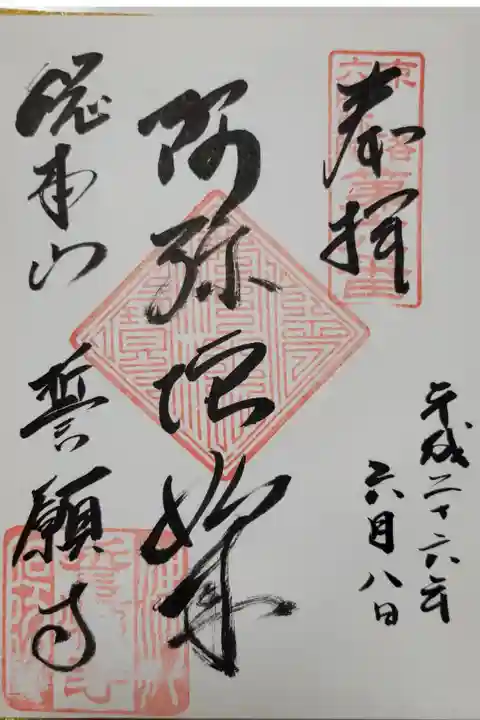 奉拝
平成二十六年
六月八日
阿弥陀如来
総本山 誓願寺